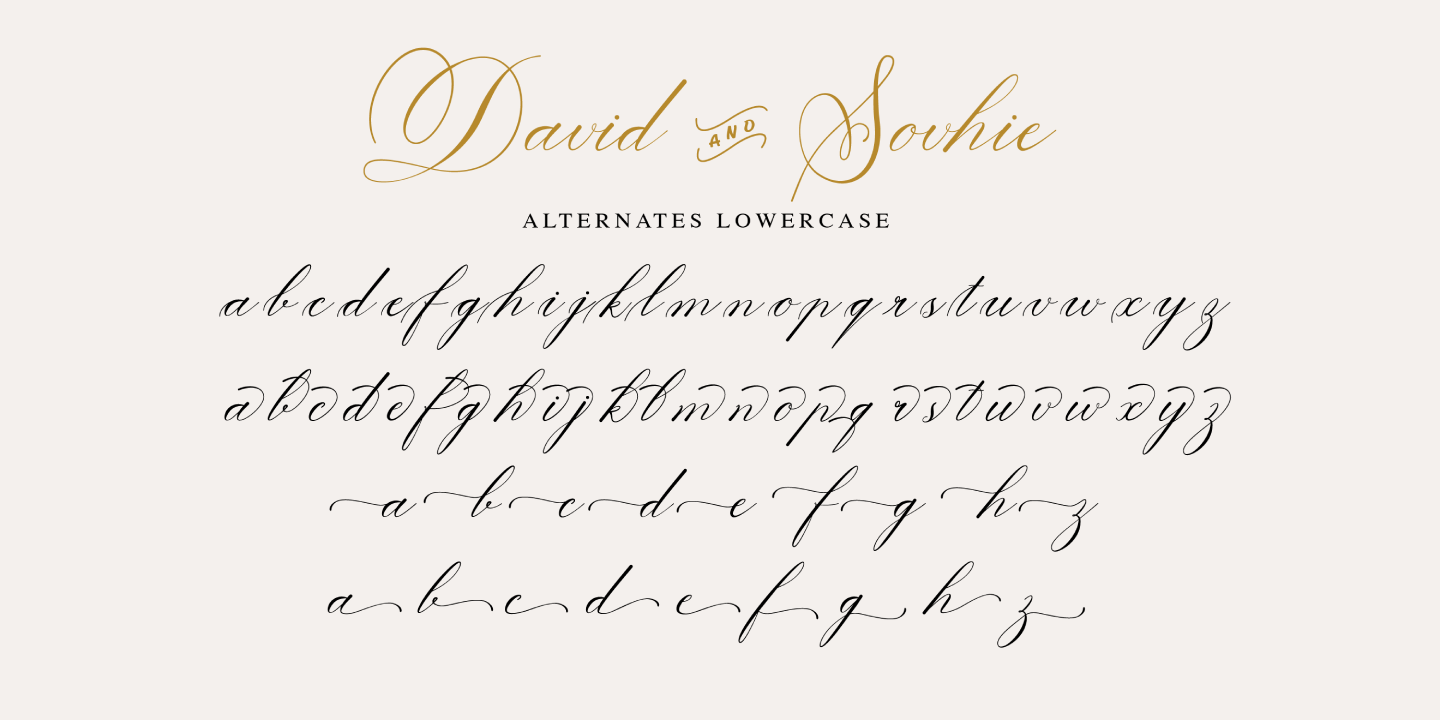 David AND Sovhie
ALTERNATES LOWERCASE
a b c d e f g h i j k l m n o p q r s t u v w x y z
a b c d e f g h i j k l m n o p q r s t u v w x y z
a b c d e f g h z
a b c d e f g h z